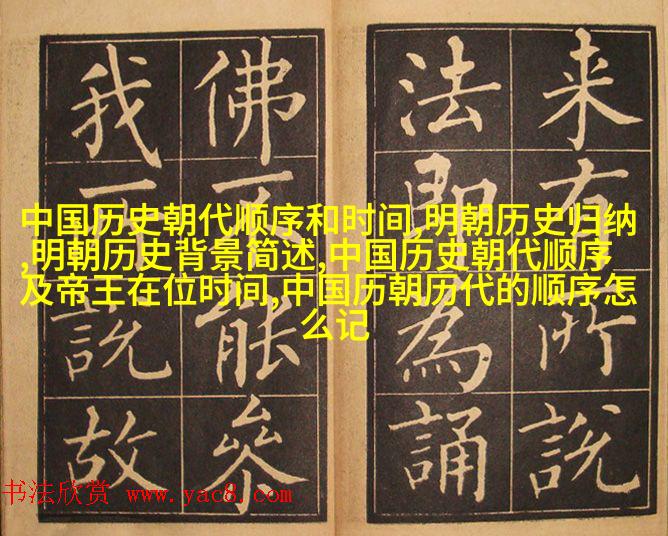 来有所說
法即為誦
佛不能叅
我說故
中国历史朝代顺序和时间,明朝历史归纳
,明朝历史背景简述,中国历史朝代顺序
及帝王在位时间,中国历朝历代的顺序怎
么记
书法欣赏 www.yac8.com